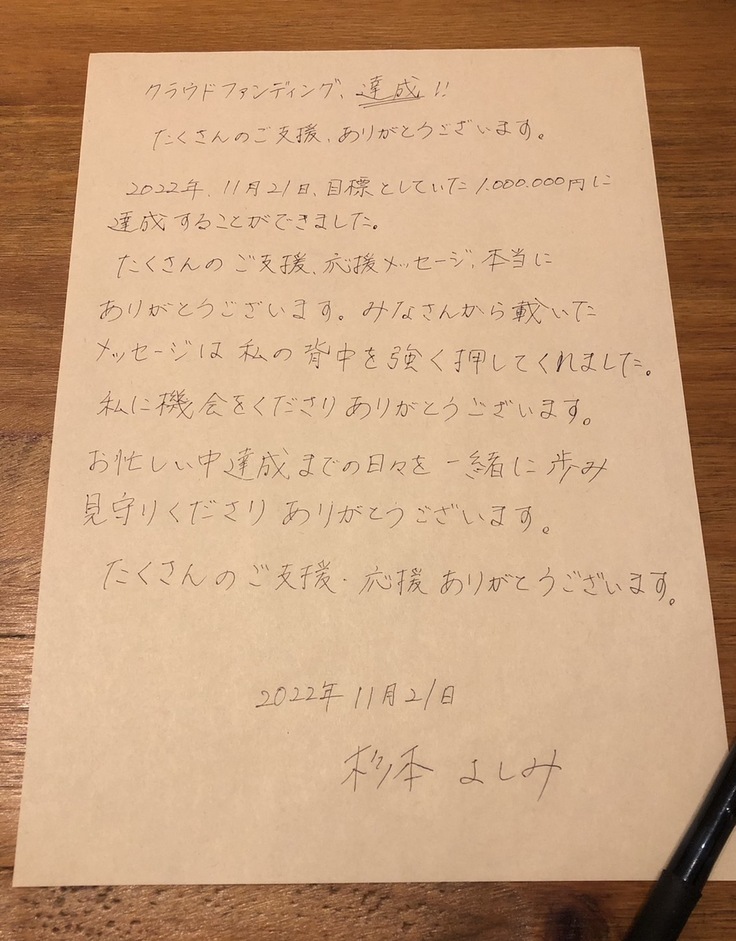 クラウドファンディング、達成!!
たくさんのご支援、ありがとうございます。
2022年、11月21日、目標としていた1.000.000円に
達成することができました。
たくさんのご支援、応援メッセージ、本当に
ありがとうございます。みなさんから載いた
メッセージは私の背中を強く押してくれました。
私に機会をくださりありがとうございます。
お忙しい中達成までの日々を一緒に歩み
見守りくださりありがとうございます。
たくさんのご支援・応援ありがとうございます。
2022年11月21日
杉本よしみ